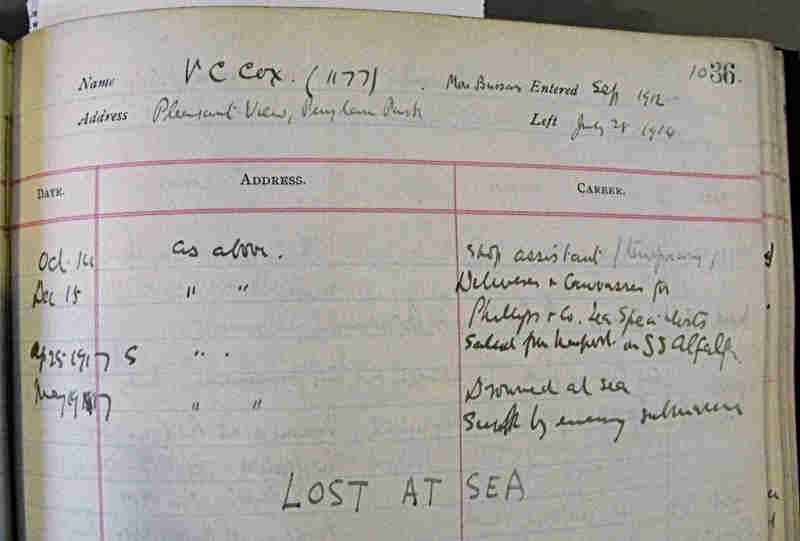 1036.
Name V C Cox. (1177). Entered Sep 1912
Address Pleasant View, Penylan Park Left July 28 1914
DATE. ADDRESS. CAREER.
Oct. 14 as above. Shop assistant (temporary)
Dec 15 " " Deliverer & Canvasser for
Phillips & Co. Tea Specialists
Ap 25 1917 S " . Sailed from Newport on SS Alfalfa
May 1917 " " Drowned at sea
Sunk by enemy submarine
LOST AT SEA